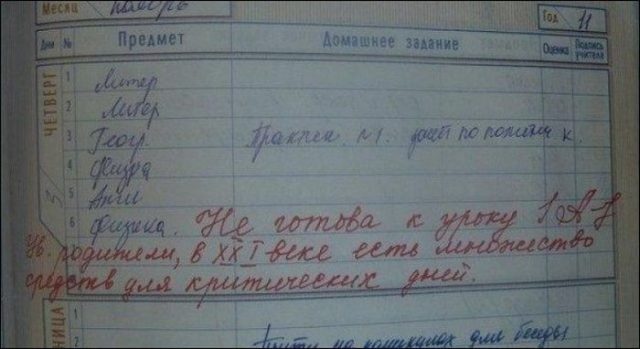 Месяц ноябрь Год 11
Дни № Предмет Домашнее задание Оценка Подпись учителя
ЧЕТВЕРГ
3
1 Литер
2 Литер
3 Геогр. Практич. №1. по политич к.
4 Физра
5 Англ
6 Физика. Не готова к уроку
Ув. родители, в XXI веке есть множество
средств для критических дней.
1
2 на каникулах для беседы